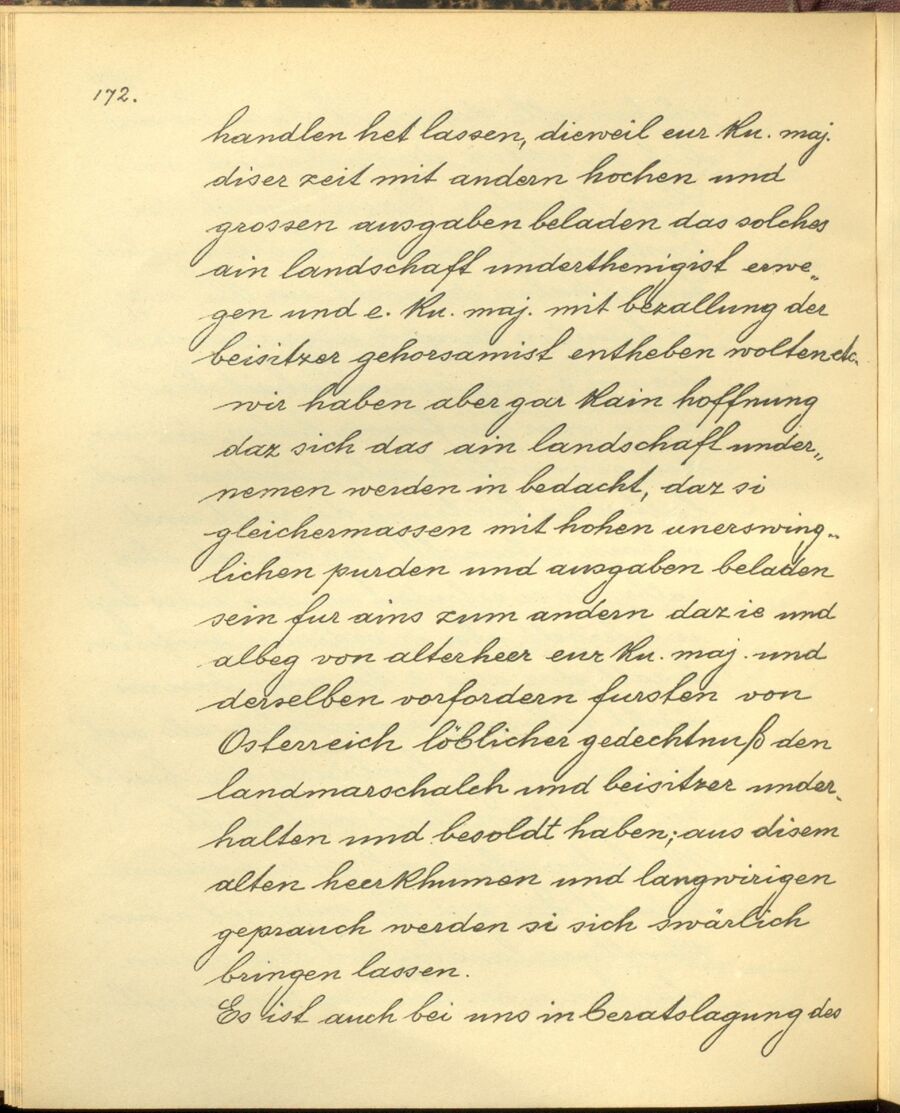 172.
handlen het lassen, dieweil eur Ku. maj.
diser zeit mit andern hochen und
grossen ausgaben beladen das solches
ain landschaft underthenigist erwe„
gen und e. Ku. maj. mit bezallung der
beisitzer gehorsamist entheben wolten etc.
wir haben aber gar kain hoffnung
daz sich das ain landschaft under„
nemen werden in bedacht, daz si
gleichermassen mit hohen unerswing„
lichen purden und ausgaben beladen
sein fur ains zum andern daz ie und
albeg von alterheer eur Ku. maj. und
derselben vorfordern fursten von
Osterreich löblicher gedechtnuß den
landmarschalch und beisitzer under„
halten und besoldt haben; aus disem
alten heerkhumen und langwirigen
geprauch werden si sich swärlich
bringen lassen.
Es ist auch bei uns in beratslagung des